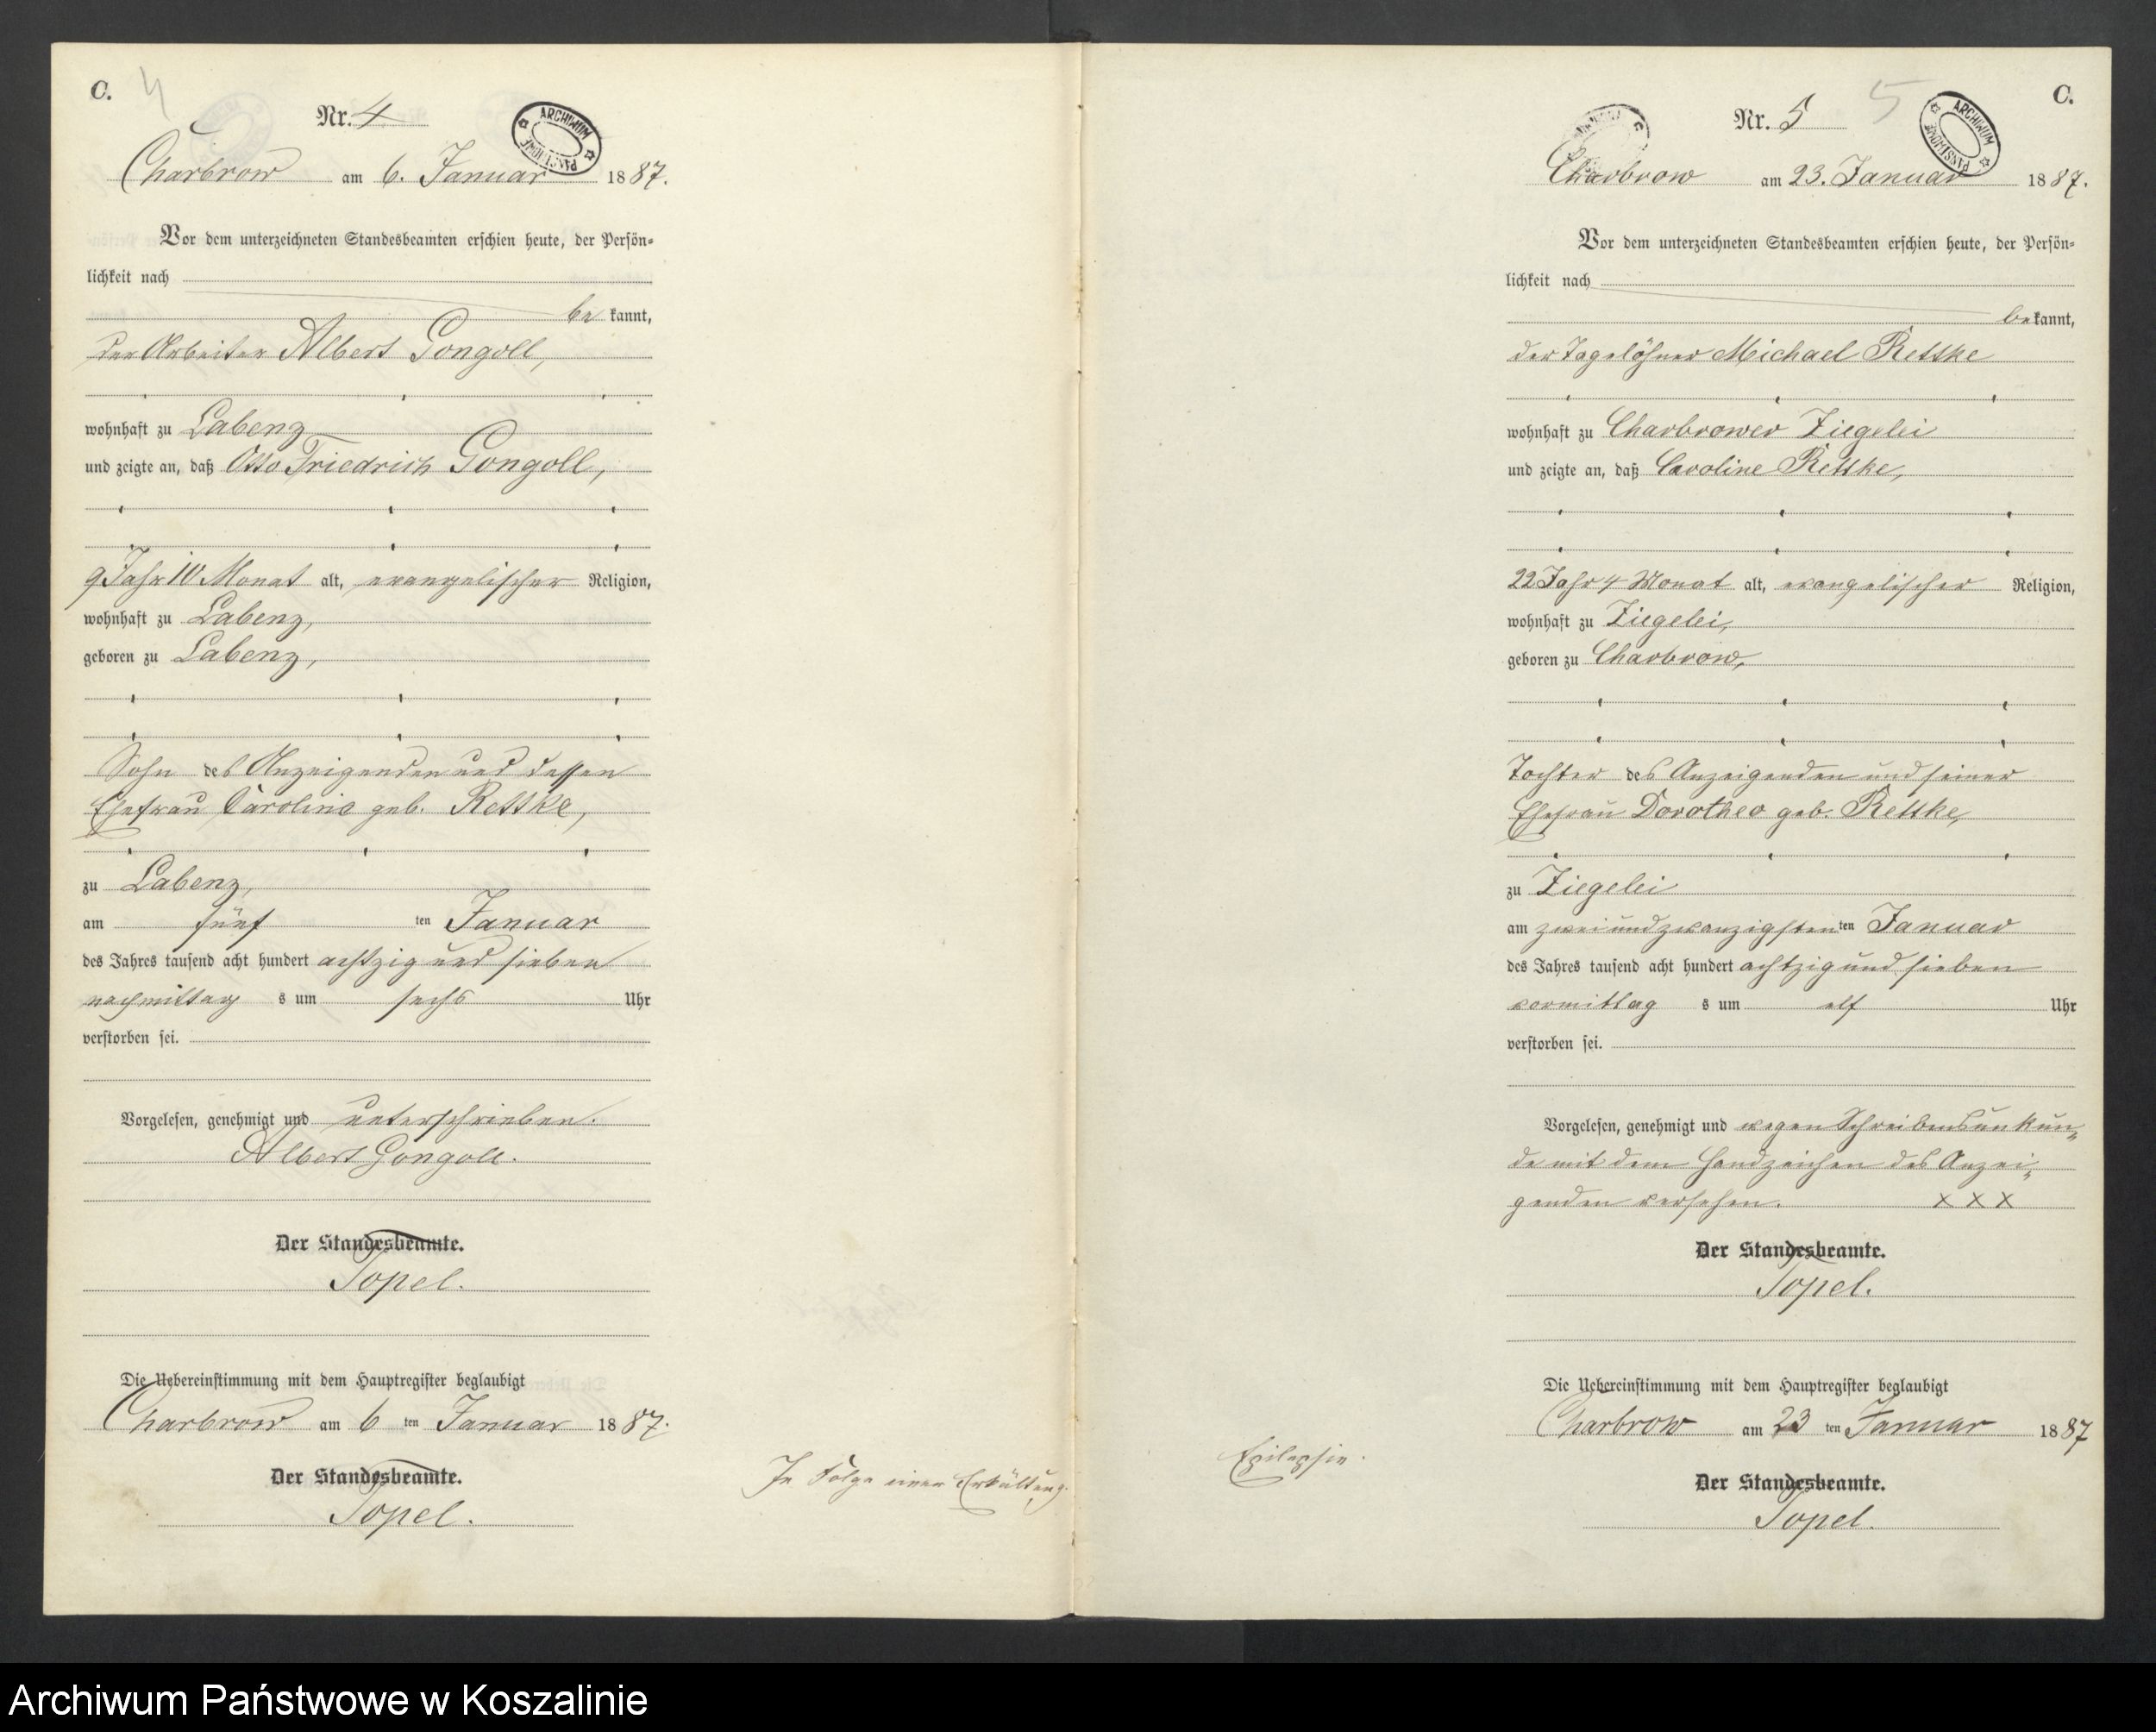 C. 4
Nr. 4
ARCHIWUM PAŃSTWOWE
Charbrow am 6. Januar 1887.
Vor dem unterzeichneten Standesbeamten erschien heute, der Persön=
lichkeit nach
be kannt,
der Arbeiter Albert Gongoll,
wohnhaft zu Labenz
und zeigte an, daß Otto Friedrich Gongoll,
9 Jahr 10 Monat alt, evangelischer Religion,
wohnhaft zu Labenz,
geboren zu Labenz,
Sohn des Anzeigenden und dessen
Ehefrau Caroline geb. Rettke,
zu Labenz,
am fünf ten Januar
des Jahres tausend acht hundert achtzig und sieben
nachmittag s um sechs Uhr
verstorben sei.
Vorgelesen, genehmigt und unterschrieben.
Albert Gongoll.
Der Standesbeamte.
Topel.
Die Uebereinstimmung mit dem Hauptregister beglaubigt
Charbrow am 6 ten Januar 1887.
Der Standesbeamte.
Topel.
In Folge einer Erkältung.
5 C.
Nr. 5
ARCHIWUM PAŃSTWOWE
Charbrow am 23. Januar 1887.
Vor dem unterzeichneten Standesbeamten erschien heute, der Persön=
lichkeit nach
bekannt,
der Tagelöhner Michael Rettke
wohnhaft zu Charbrower Ziegelei
und zeigte an, daß Caroline Rettke,
22 Jahr 4 Monat alt, evangelischer Religion,
wohnhaft zu Ziegelei,
geboren zu Charbrow,
Tochter des Anzeigenden und seiner
Ehefrau Dorothea geb. Rettke,
zu Ziegelei
am zwei und zwanzigsten ten Januar
des Jahres tausend acht hundert achtzig und sieben
vormittag s um elf Uhr
verstorben sei.
Vorgelesen, genehmigt und wegen Schreibensunkun=
de mit dem Handzeichen des Anzei=
genden versehen. XXX
Der Standesbeamte.
Topel.
Die Uebereinstimmung mit dem Hauptregister beglaubigt
Charbrow am 23 ten Januar 1887
Der Standesbeamte.
Topel.
Epilepsie.
Archiwum Państwowe w Koszalinie